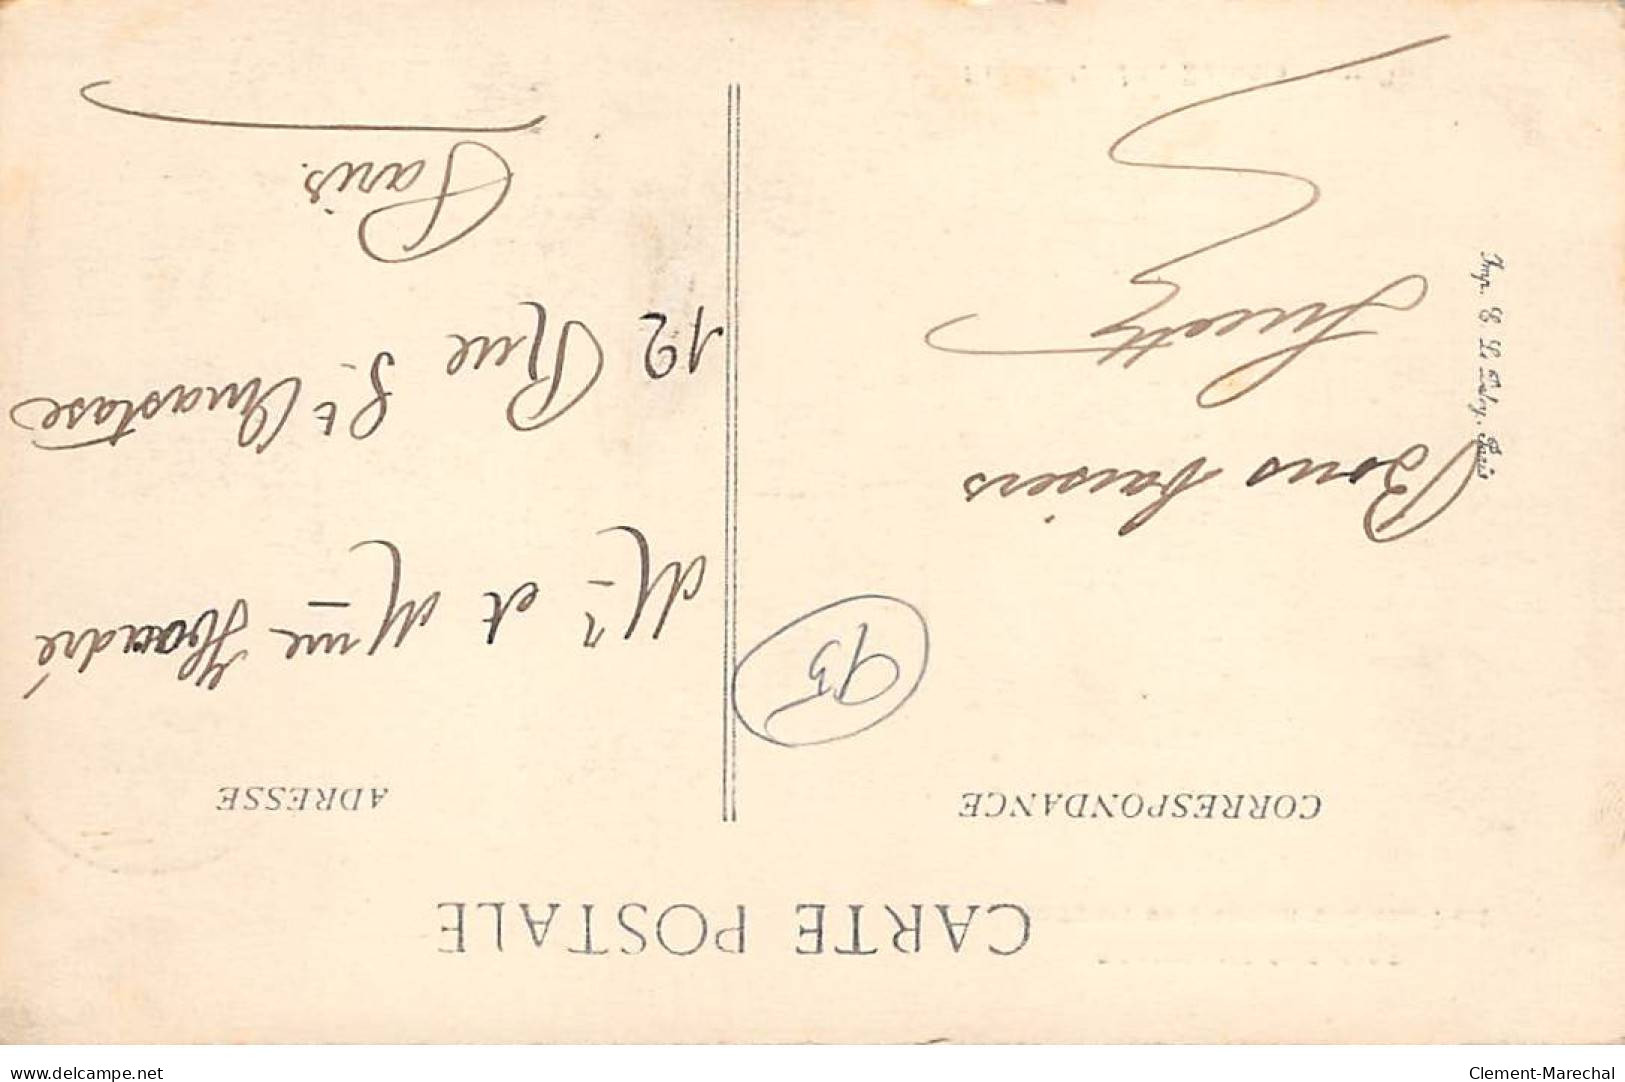 CARTE POSTALE
CORRESPONDANCE
ADRESSE
95
Bons baisers
Imp. E. Le Deley, Paris
Mr et Mme
12 Rue St Anastase
Paris.
delcampe.net
Clement-Marechal